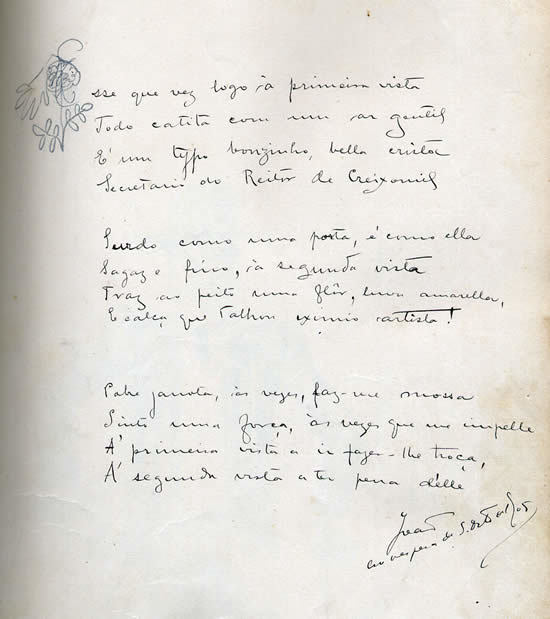 Esse que vez logo á primeira vista
Todo catita com um ar gentil
É um typo bonzinho, bella crista
Secretario do Reitor de Creixomil
Surdo como uma porta, é como ella
Sagaz e fino, á segunda vista
Traz ao peito uma flôr, luva amarella,
E calça que talhou eximio artista!
Pobre janota, ás vezes, faz-me mossa
Sinto uma força, ás vezes que me impelle
A' primeira vista a ir fazer-lhe troça,
Á segunda vista a ter pena d'elle
João